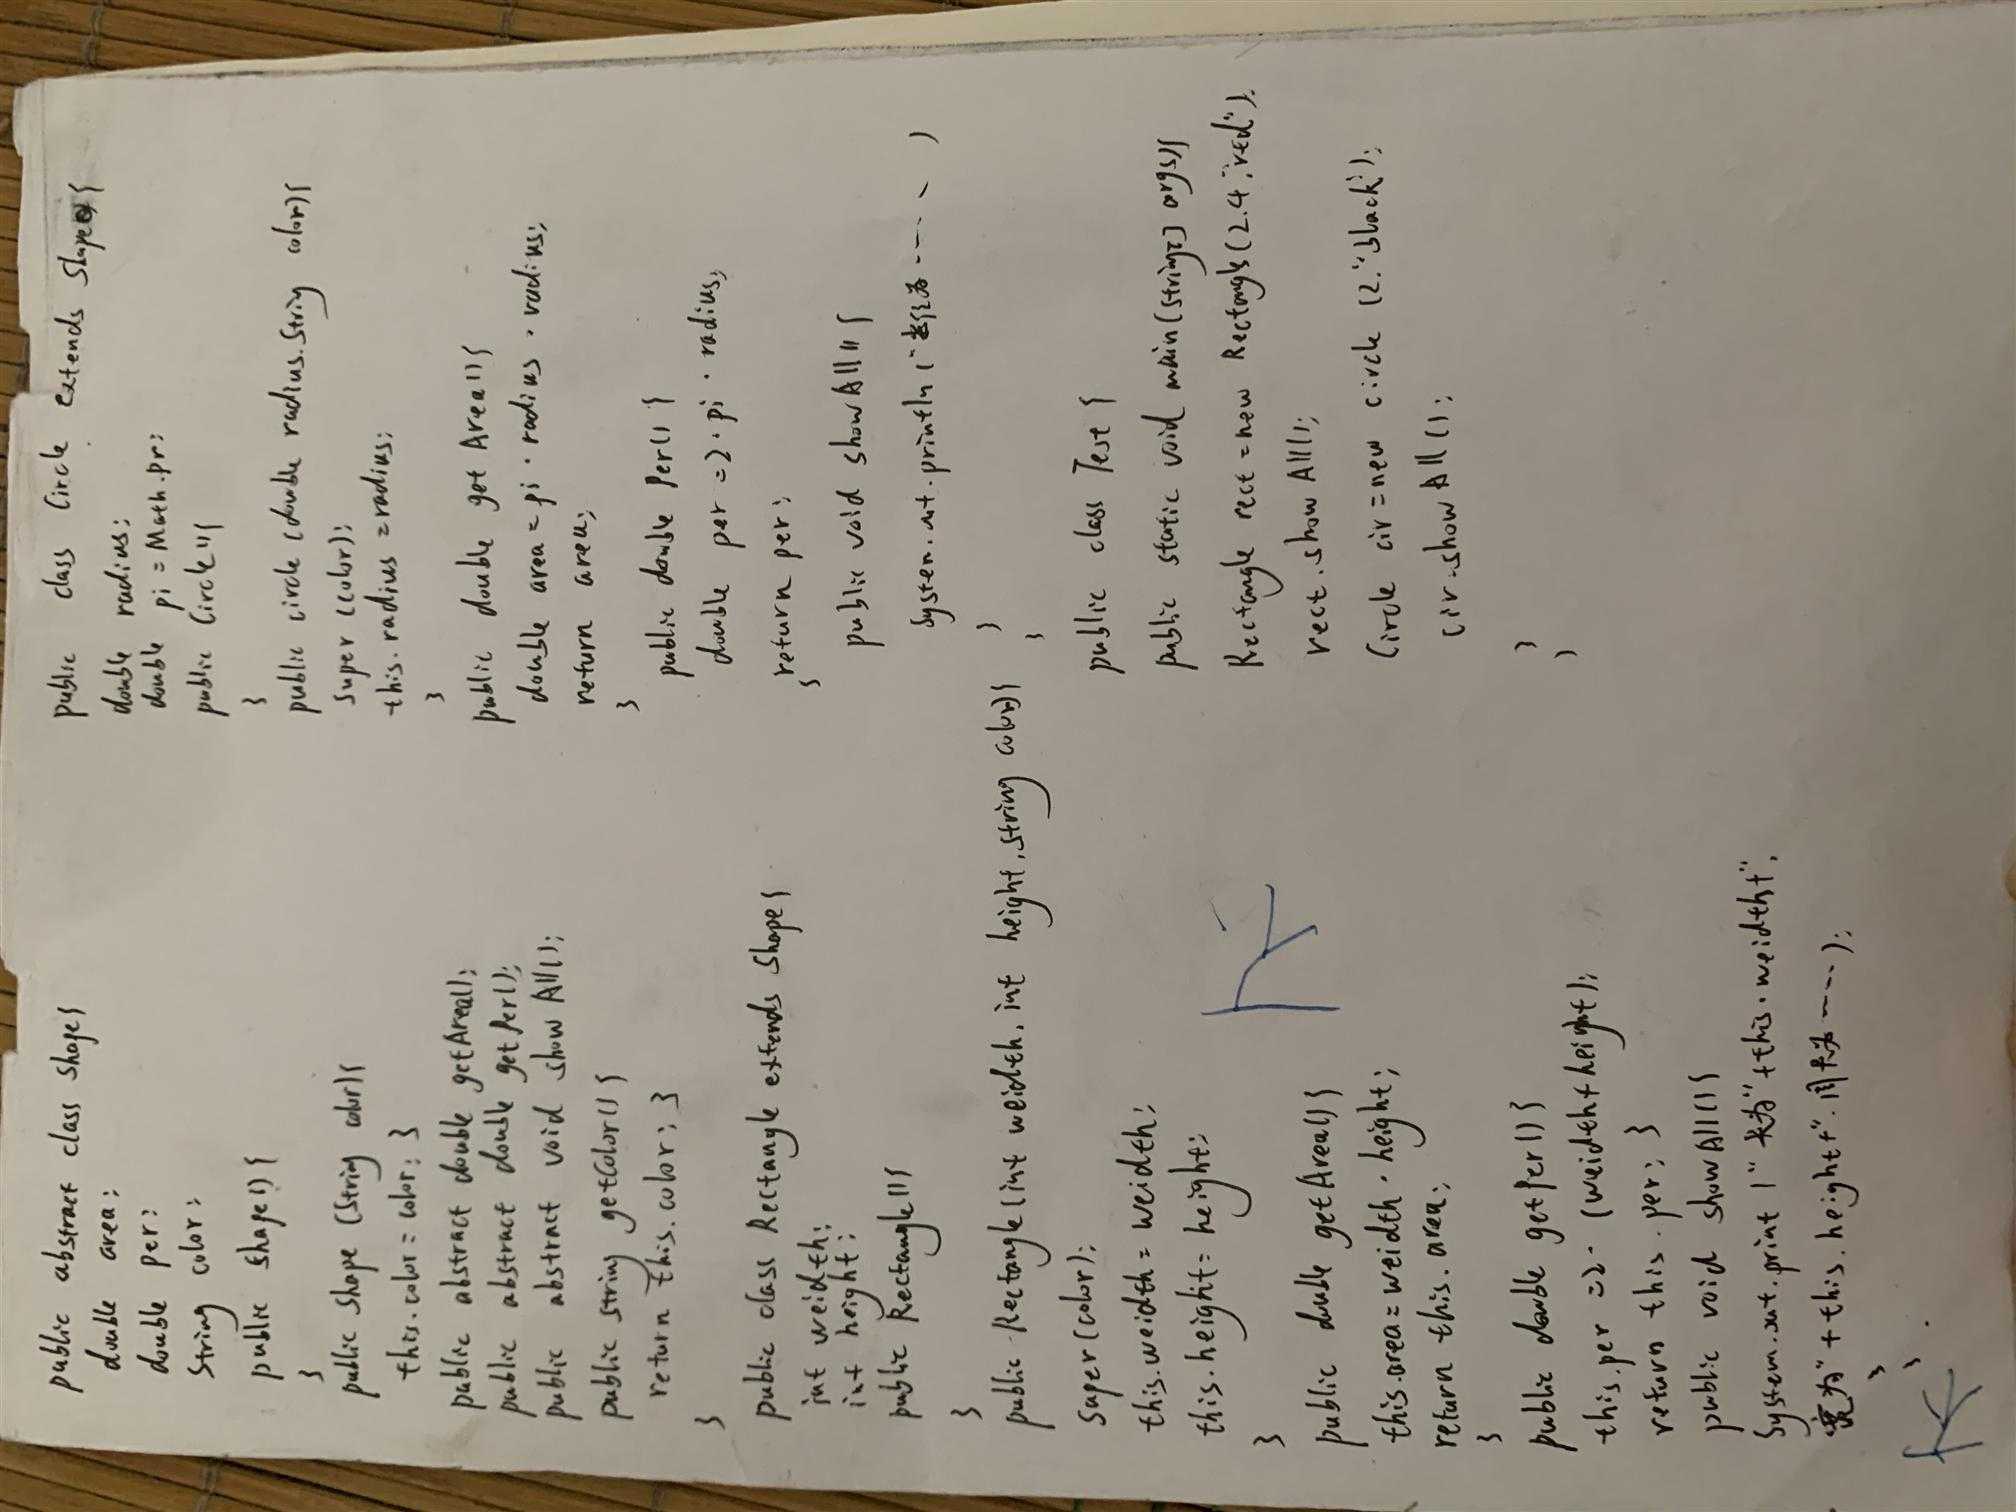 public abstract class shape{
double area;
double per;
String color;
public shape(){
}
public shape (String color){
this.color = color; }
public abstract double getArea();
public abstract double getPer();
public abstract void show All();
public string getColor(){
return this.color; }
}
public class Rectangle extends shape{
int weidth;
int height;
public Rectangle(){
}
public Rectangle(int weidth, int height, string color){
super(color);
this.weidth = weidth;
this.height = height;
}
public double getArea(){
this.area = weidth · height;
return this.area;
}
public double getPer(){
this.per = 2 · (weidth + height);
return this.per; }
public void showAll(){
System.out.print ("长为"+this.weidth+",
宽为"+this.height+",周长为----);
}
}
public class Circle extends shape{
double radius;
double pi = Math.pi;
public Circle(){
}
public circle (double radius.String color){
super (color);
this.radius = radius;
}
public double get Area(){
double area = pi · radius · radius;
return area;
}
public double Per(){
double per = 2 · pi · radius;
return per;
}
public void showAll(){
System.out.println("为----)
}
}
public class Test {
public static void main(String[] args){
Rectangle rect = new Rectangle(2.4,"red");
rect.show All();
Circle cir = new circle (2."black");
cir.show All();
}
}